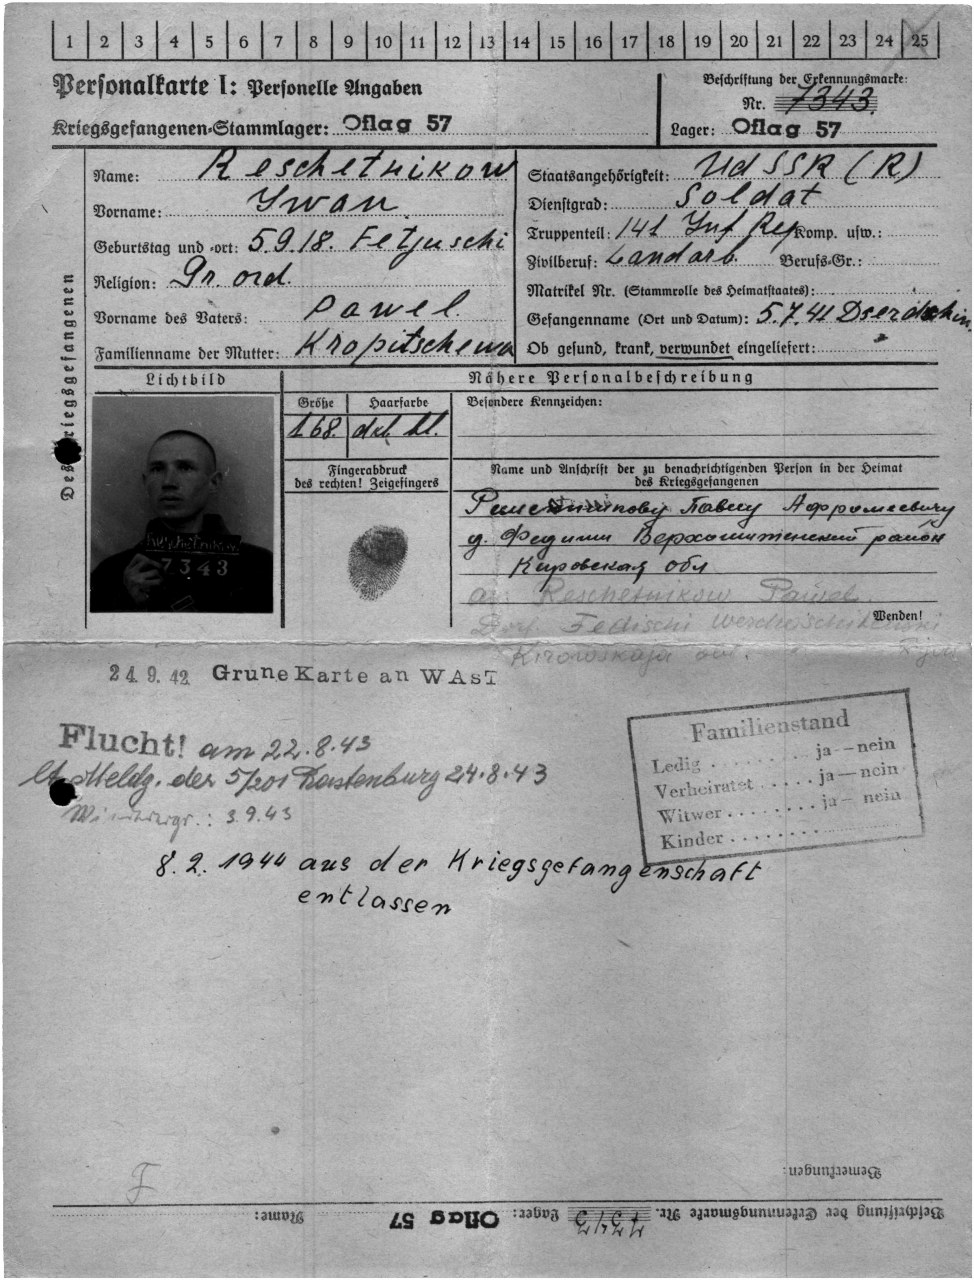 1 2 3 4 5 6 7 8 9 10 11 12 13 14 15 16 17 18 19 20 21 22 23 24 25
Personalkarte I: Personelle Angaben
Beschriftung der Erkennungsmarke:
Nr. 7343
Kriegsgefangenen-Stammlager: Oflag 57
Lager: Oflag 57
Des Kriegsgefangenen
Name: Reschetnikow
Vorname: Iwan
Geburtstag und -ort: 5.9.18. Fetjuschi
Religion: Gr. ord.
Vorname des Vaters: Pawel
Familienname der Mutter: Kropitschewa
Staatsangehörigkeit: UdSSR (R)
Dienstgrad: Soldat
Truppenteil: 141 Inf Reg Komp. usw.:
Zivilberuf: Landarb. Berufs-Gr.:
Matrikel Nr. (Stammrolle des Heimatstaates):
Gefangenname (Ort und Datum): 5.7.41 Dserdschin.
Ob gesund, krank, verwundet eingeliefert:
Lichtbild
Nähere Personalbeschreibung
Größe Haarfarbe
168. dkl. bl.
Besondere Kennzeichen:
Fingerabdruck
des rechten! Zeigefingers
Name und Anschrift der zu benachrichtigenden Person in der Heimat
des Kriegsgefangenen
Решетникову Павлу
д. Федиши район
Кировская обл
an: Reschetnikow Pawel
Dorf Fedischi
Kirowskaja obl.
Wenden!
Reschetnikow
7343
24.9.42 Grune Karte an WAsT
Flucht! am 22.8.43
lt. Meldg. der 5/201 Rastenburg 24.8.43
3.9.43
8.2.1944 aus der Kriegsgefangenschaft
entlassen
Familienstand
Ledig ja — nein
Verheiratet ja — nein
Witwer ja — nein
Kinder
F
Bemerkungen:
Beschriftung der Erkennungsmarke Nr. 7343 Lager: Oflag 57 Name: